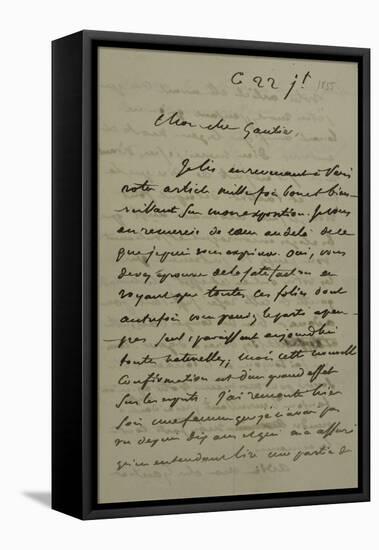 C 22 jt 1855
Mon cher Gautier,
Je lis en revenant à Paris
votre article mille fois bon et bien-
veillant sur mon exposition. Je vous
en remercie de cœur au delà de ce
que je puis vous exprimer. Oui, vous
devez éprouver de la satisfaction en
voyant que toutes ces folies dont
autrefois vous preniez le parti à peu
près seul, paraissent aujourd'hui
toute naturelles; mais cette nouvelle
confirmation est d'un grand effet
sur les esprits. J'ai rencontré hier
soir une femme que je n'avais pas
vu depuis dix ans et qui m'a assuré
qu'en entendant lire une partie de